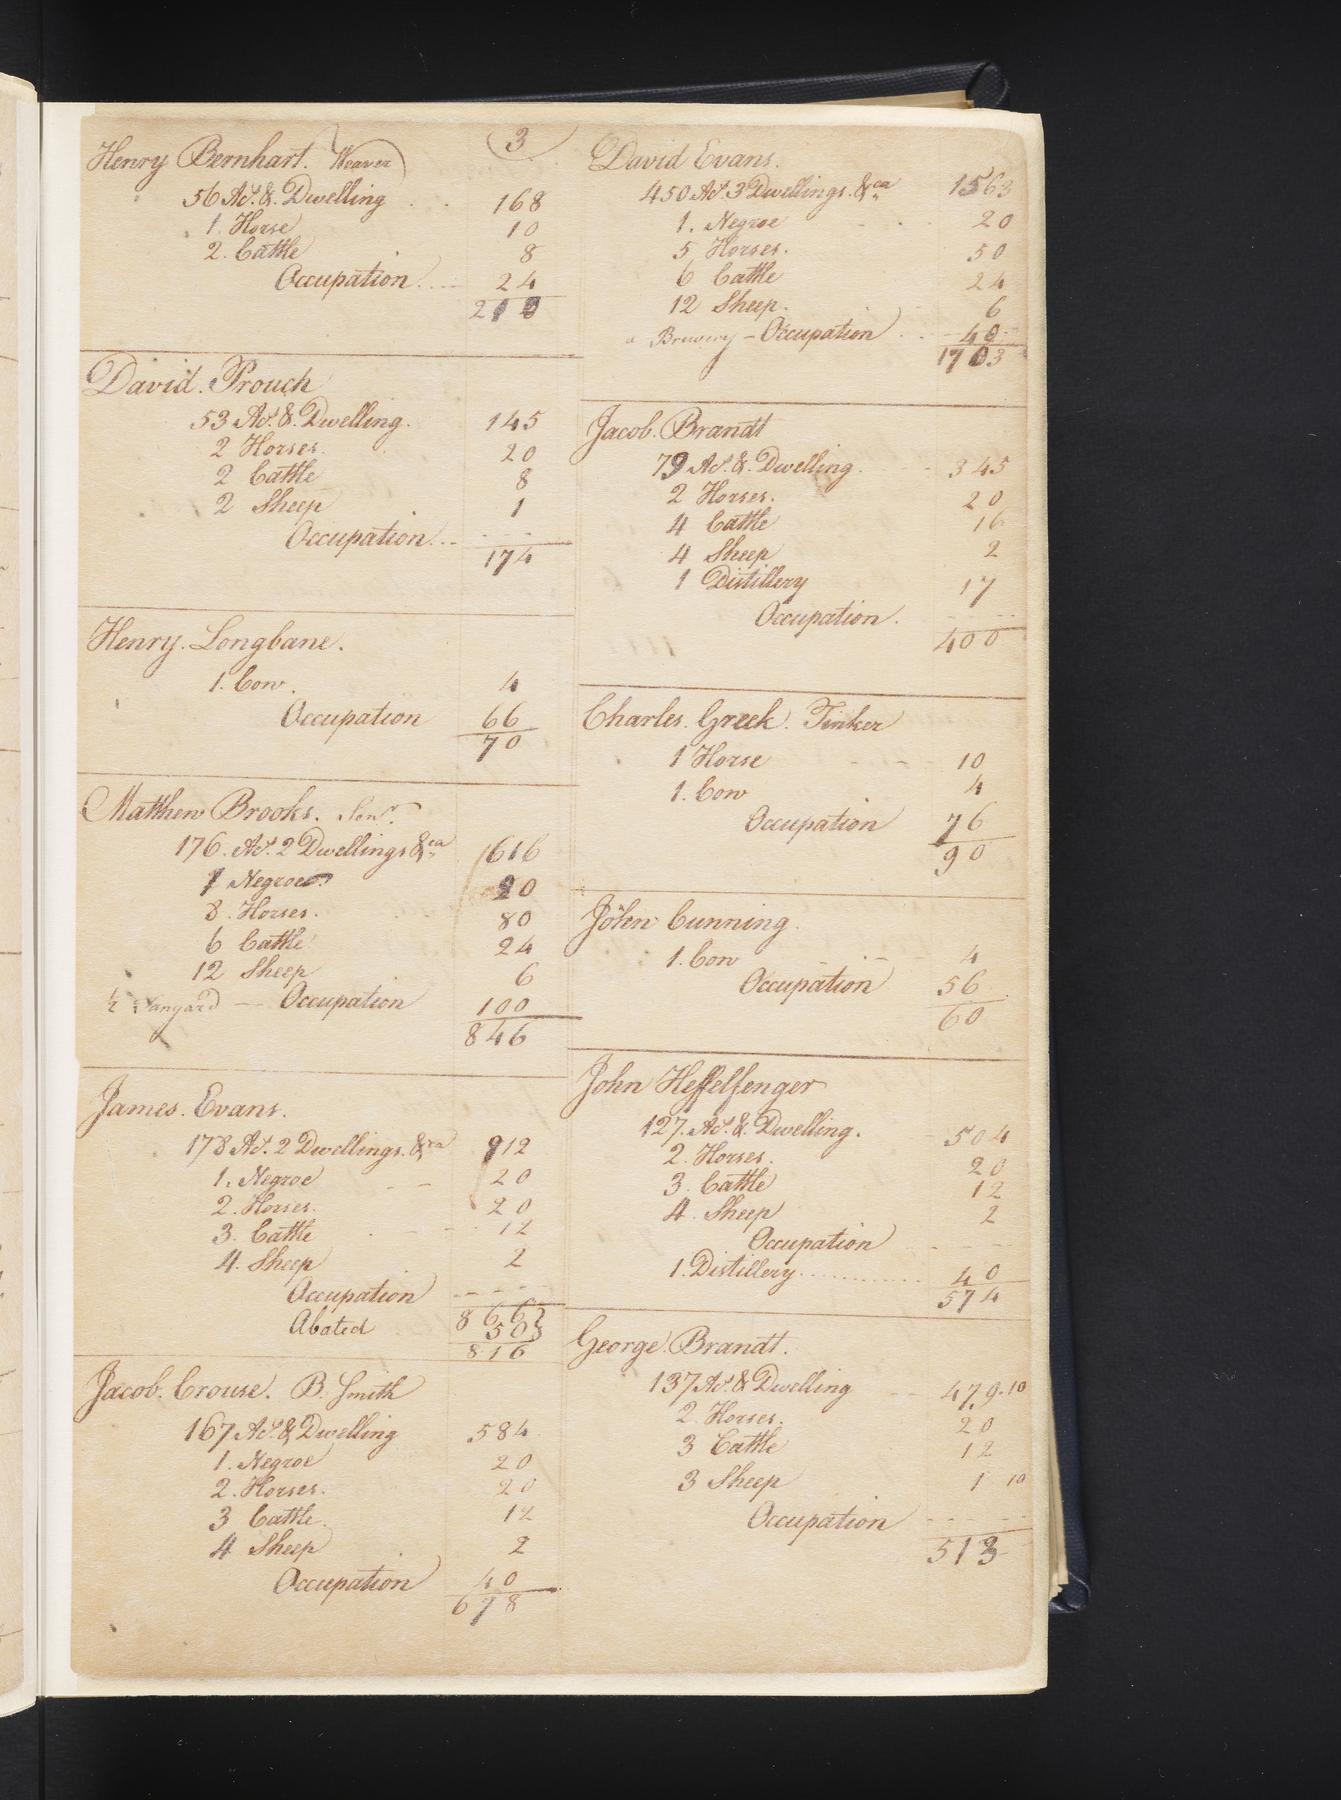 3
Henry Bernhart. Weaver
56 Acs. & Dwelling . . 168
1. Horse 10
2. Cattle 8
Occupation . . . 24
210
David. Prouch
53 Acs. & Dwelling. 145
2 Horses. 20
2 Cattle 8
2 Sheep 1
Occupation. . . - - -
174
Henry. Longbane.
1. Cow. 4
Occupation 66
70
Matthew Brooks. Senr.
176. Acs. 2 Dwellings &ca 616
1 Negroe 20
8. Horses. 80
6 Cattle 24
12 Sheep 6
½ Tanyard — Occupation 100
846
James. Evans.
178 Acs. 2 Dwellings. &ca 812
1. Negroe - - 20
2. Horses. 20
3. Cattle 12
4. Sheep 2
Occupation - - - -
866
Abated 50
816
Jacob. Crouse. B. Smith
167 Acs. & Dwelling 584
1. Negroe 20
2. Horses. 20
3 Cattle. 12
4 Sheep 2
Occupation 40
678
David Evans.
450 Acs. 3 Dwellings. &ca 1563
1. Negroe 20
5 Horses. 50
6 Cattle 24
12 Sheep. 6
a Brewery – Occupation . . 40
1703
Jacob. Brandt
79 Acs. & Dwelling. 345
2 Horses. 20
4 Cattle 16
4 Sheep 2
1 Distillery 17
Occupation. - - -
400
Charles. Greek. Tinker
1 Horse - - - 10
1. Cow 4
Occupation 76
90
John Cunning.
1. Cow - - - 4
Occupation 56
60
John Heffelfenger
127. Acs. & Dwelling. 504
2. Horses. 20
3. Cattle 12
4. Sheep 2
Occupation - - - -
1. Distillery . . . . . . . . . . . 40
574
George. Brandt.
137 Acs. & Dwelling - - 479.10
2. Horses. 20
3 Cattle 12
3 Sheep 1 10
Occupation - - - -
513